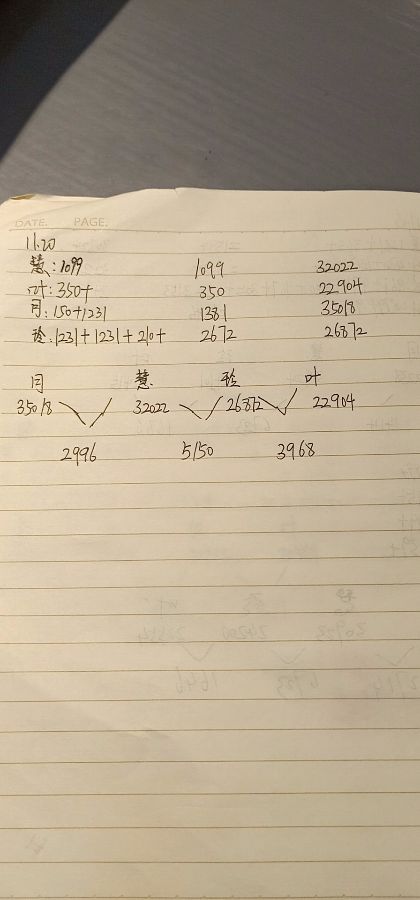 DATE. PAGE.
11.20
慧:1099 1099 32022
叶:350+ 350 22904
月:150+1231 1381 35018
玲:1231+1231+210+ 2672 26872
月 慧 玲 叶
35018 32022 26872 22904
2996 5150 3968